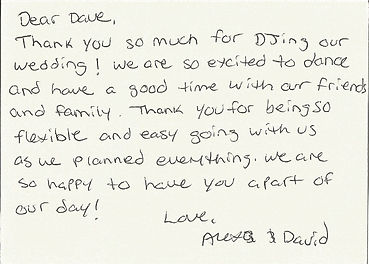 Dear Dave,
Thank you so much for DJing our
wedding! we are so excited to dance
and have a good time with our friends
and family. Thank you for being so
flexible and easy going with us
as we planned everything. we are
so happy to have you apart of
our day!
Love,
Alexa & David